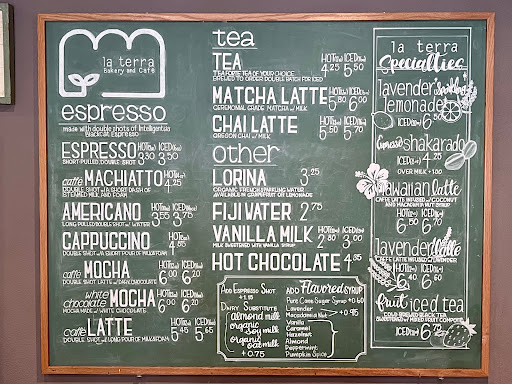 la terra
Bakery and Café
espresso
made with double shots of Intelligentsia
Blackcat Espresso
ESPRESSO HOT(12oz) 3.30 ICED(16oz) 3.50
SHORT-PULLED, DOUBLE SHOT
caffé MACHIATTO HOT(12oz) 4.25
DOUBLE SHOT w/ A SHORT DASH OF
STEAMED MILK AND FOAM
AMERICANO HOT(12oz) 3.55 ICED(16oz) 3.75
LONG-PULLED DOUBLE SHOT w/ WATER
CAPPUCCINO HOT(12oz) 4.85
DOUBLE SHOT w/ SHORT POUR OF MILK & FOAM
caffé MOCHA HOT(12oz) 6.00 ICED(16oz) 6.20
DOUBLE SHOT LATTE w/ DARK CHOCOLATE
white chocolate MOCHA HOT(12oz) 6.00 ICED(16oz) 6.20
MOCHA MADE w/ WHITE CHOCOLATE
caffé LATTE HOT(12oz) 5.45 ICED(16oz) 5.65
DOUBLE SHOT w/ LONG POUR OF MILK & FOAM
tea
TEA HOT(12oz) 4.25 ICED(16oz) 5.50
TEAFORTE TEA OF YOUR CHOICE
BREWED TO ORDER DOUBLE BATCH FOR ICED
MATCHA LATTE HOT(12oz) 5.80 ICED(16oz) 6.00
CEREMONIAL GRADE MATCHA w/ MILK
CHAI LATTE HOT(12oz) 5.50 ICED(16oz) 5.70
OREGON CHAI w/ MILK
other
LORINA 3.25
ORGANIC FRENCH SPARKLING WATER
AVAILABLE IN GRAPEFRUIT OR LEMONADE
FIJI WATER 2.75
VANILLA MILK HOT(12oz) 2.80 ICED(16oz) 3.00
MILK SWEETENED WITH VANILLA SYRUP
HOT CHOCOLATE 4.85
ADD ESPRESSO SHOT
+1.15
DAIRY SUBSTITUTE
almond milk
organic soy milk
organic oat milk
+0.75
ADD Flavored SYRUP
Pure Cane Sugar Syrup +0.60
Lavender
Macadamia Nut
Vanilla
Caramel
Hazelnut
Almond
Peppermint
Pumpkin Spice
+0.95
la terra
Specialties
lavender
sparkling
lemonade
ICED(16oz) 6.50
shakarado
ICED(16oz) 4.25
OVER MILK +1.00
hawaiian latte
CAFFE LATTE INFUSED w/ COCONUT
AND MACADAMIA NUT SYRUP
HOT(12oz) 6.50 ICED(16oz) 6.70
lavender latte
CAFFE LATTE INFUSED w/ LAVENDER
HOT(12oz) 6.40 ICED(16oz) 6.60
fruit iced tea
COLD BREWED BLACK TEA
SWEETENED w/ MIXED FRUIT COMPOTE
ICED(16oz) 6.75